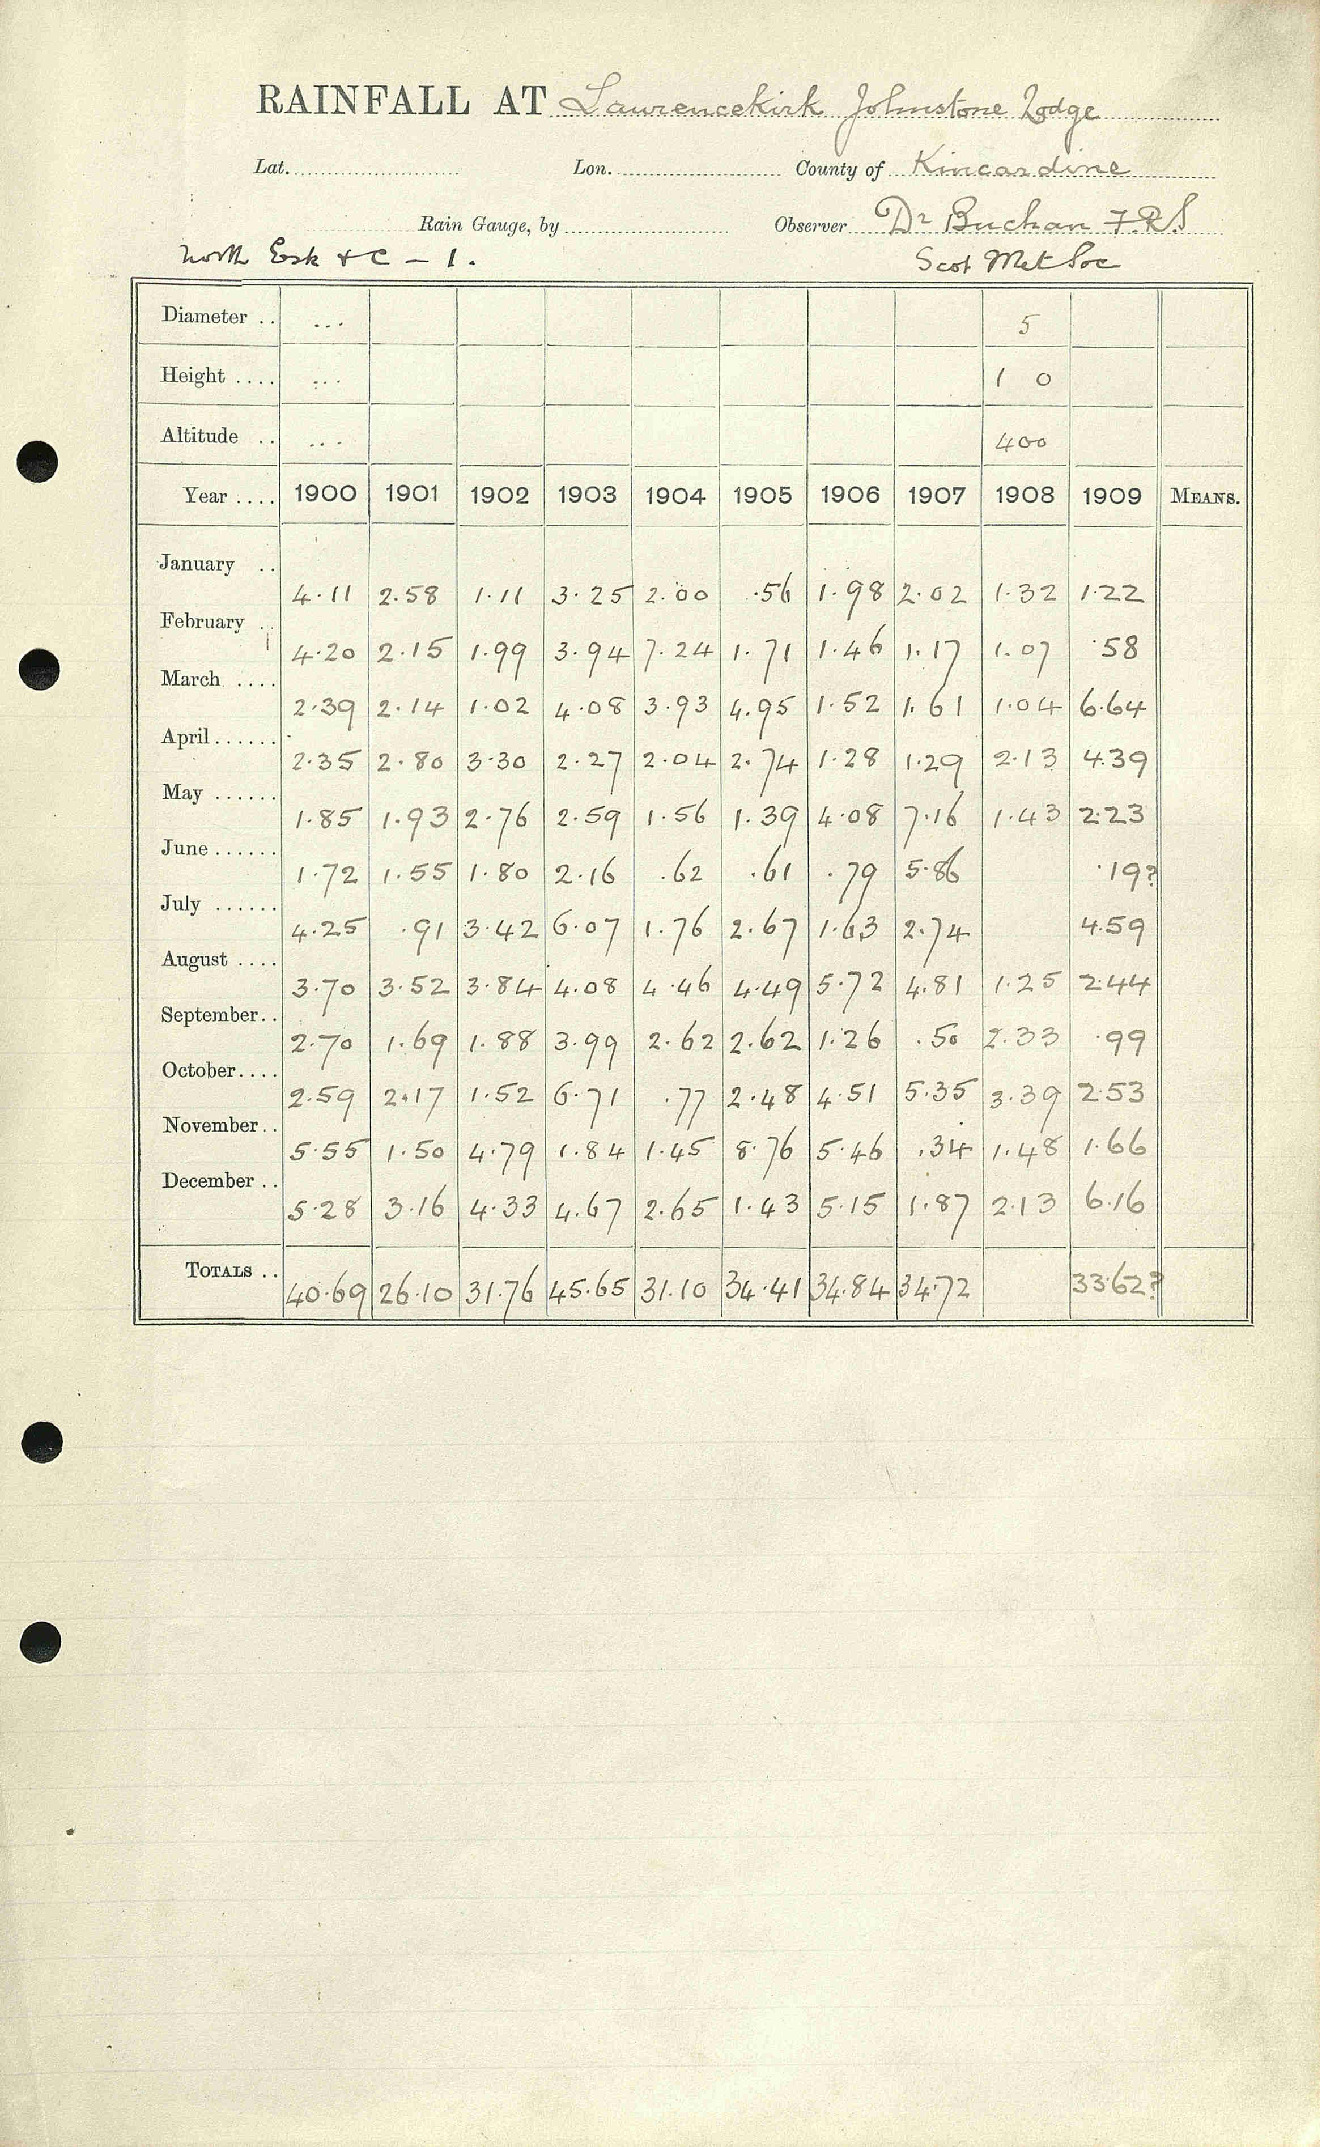 RAINFALL AT Laurencekirk Johnstone Lodge
Lat. Lon. County of Kincardine
Rain Gauge, by Observer Dr Buchan F.R.S
North Esk & C - 1. Scot Met Soc
Diameter .. ... 5
Height .... ... 1 0
Altitude .. ... 400
Year .... 1900 1901 1902 1903 1904 1905 1906 1907 1908 1909 MEANS.
January ..
4.11 2.58 1.11 3.25 2.00 .56 1.98 2.02 1.32 1.22
February ..
4.20 2.15 1.99 3.94 7.24 1.71 1.46 1.17 1.07 .58
March ....
2.39 2.14 1.02 4.08 3.93 4.95 1.52 1.61 1.04 6.64
April......
2.35 2.80 3.30 2.27 2.04 2.74 1.28 1.29 2.13 4.39
May ......
1.85 1.93 2.76 2.59 1.56 1.39 4.08 7.16 1.43 2.23
June ......
1.72 1.55 1.80 2.16 .62 .61 .79 5.86 .19?
July ......
4.25 .91 3.42 6.07 1.76 2.67 1.63 2.74 4.59
August ....
3.70 3.52 3.84 4.08 4.46 4.49 5.72 4.81 1.25 2.44
September..
2.70 1.69 1.88 3.99 2.62 2.62 1.26 .50 2.33 .99
October....
2.59 2.17 1.52 6.71 .77 2.48 4.51 5.35 3.39 2.53
November..
5.55 1.50 4.79 1.84 1.45 8.76 5.46 .34 1.48 1.66
December ..
5.28 3.16 4.33 4.67 2.65 1.43 5.15 1.87 2.13 6.16
TOTALS ..
40.69 26.10 31.76 45.65 31.10 34.41 34.84 34.72 33.62?